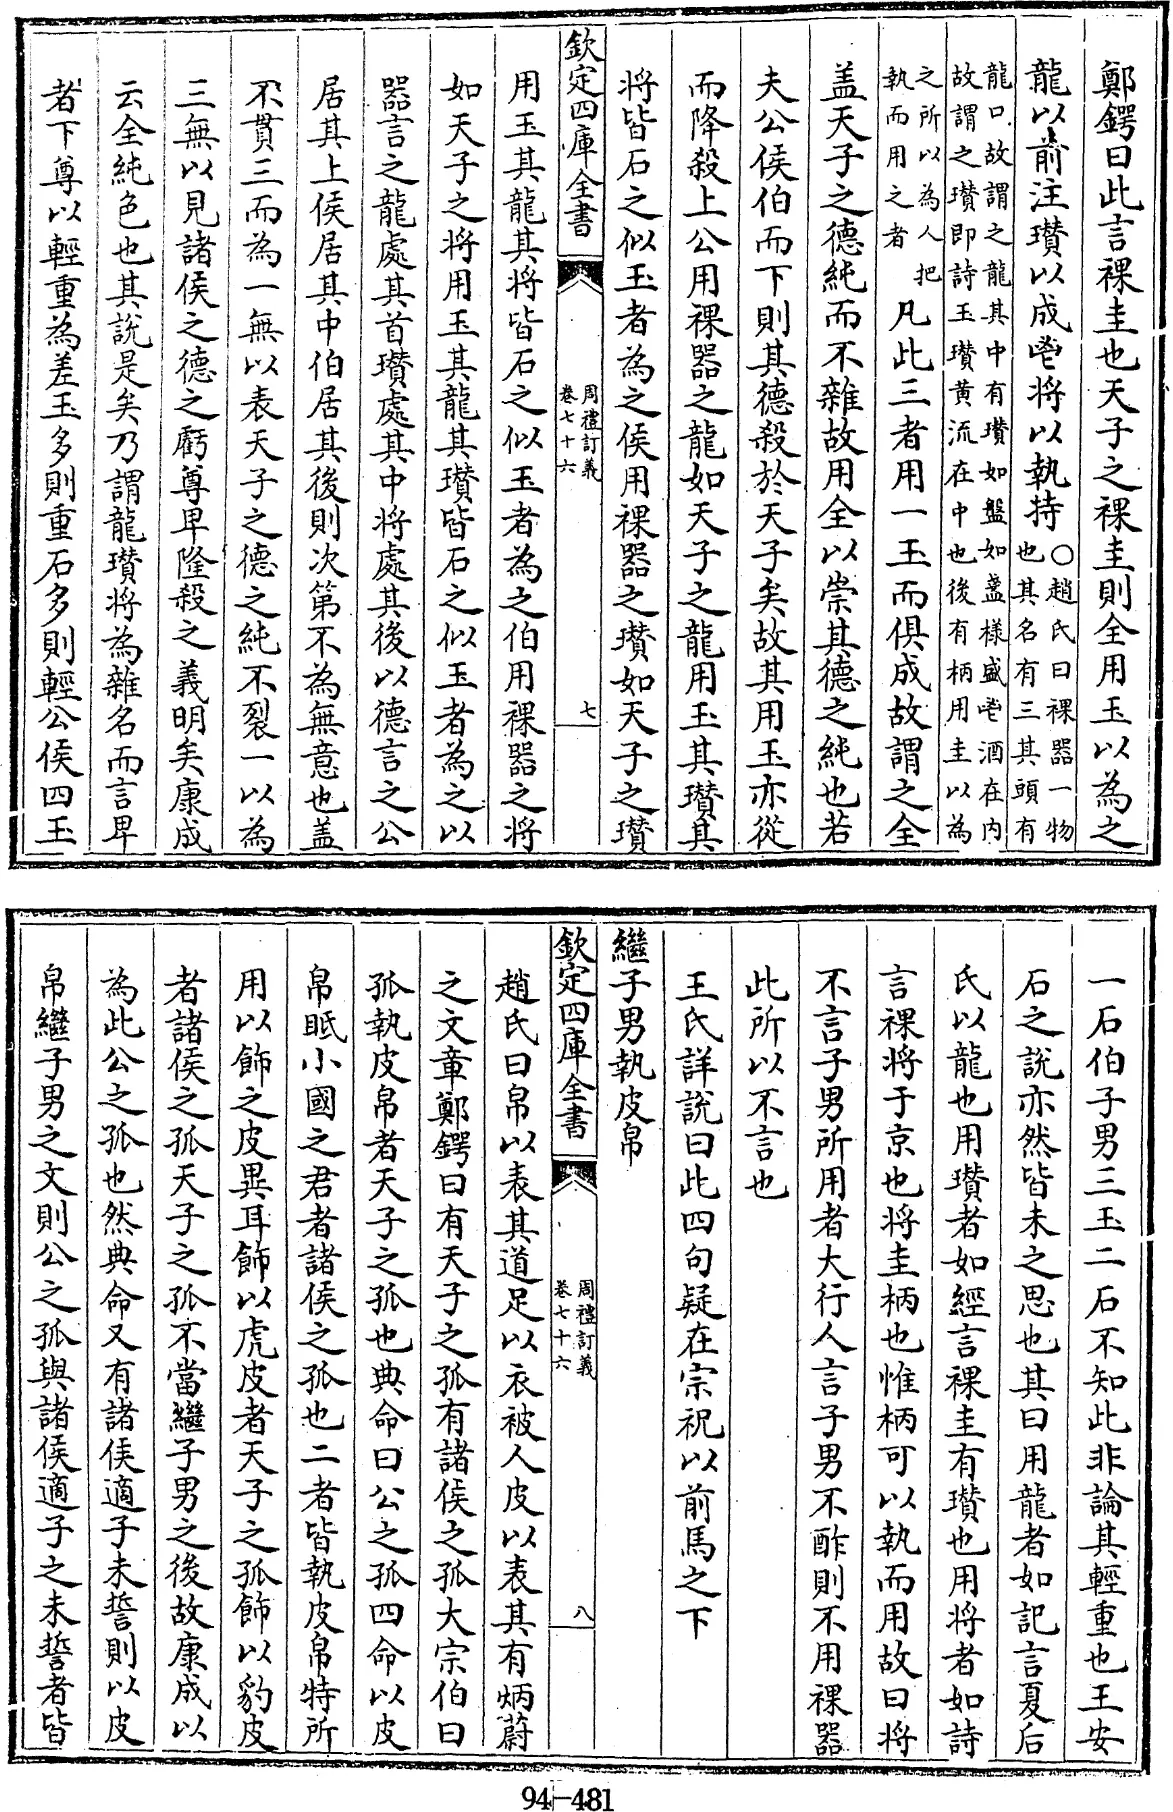 鄭鍔曰此言祼圭也天子之祼圭則全用玉以為之
龍以前注瓚以成鬯將以執持○趙氏曰祼器一物
也其名有三其頭有
龍口故謂之龍其中有瓚如盤如盞樣盛鬯酒在内
故謂之瓚即詩玉瓚黄流在中也後有柄用圭以為
之所以為人把
執而用之者
凡此三者用一玉而俱成故謂之全
盖天子之德純而不雜故用全以崇其德之純也若
夫公侯伯而下則其德殺於天子矣故其用玉亦從
而降殺上公用祼器之龍如天子之龍用玉其瓚其
將皆石之似玉者為之侯用祼器之瓚如天子之瓚
欽定四庫全書
周禮訂義
卷七十六
七
用玉其龍其將皆石之似玉者為之伯用祼器之將
如天子之將用玉其龍其瓚皆石之似玉者為之以
器言之龍處其首瓚處其中將處其後以德言之公
居其上侯居其中伯居其後則次第不為無意也盖
不貫三而為一無以表天子之德之純不裂一以為
三無以見諸侯之德之虧尊卑隆殺之義明矣康成
云全純色也其說是矣乃謂龍瓚將為雜名而言卑
者下尊以輕重為差玉多則重石多則輕公侯四玉
一石伯子男三玉二石不知此非論其輕重也王安
石之說亦然皆未之思也其曰用龍者如記言夏后
氏以龍也用瓚者如經言祼圭有瓚也用將者如詩
言祼將于京也將圭柄也惟柄可以執而用故曰將
不言子男所用者大行人言子男不酢則不用祼器
此所以不言也
王氏詳說曰此四句疑在宗祝以前馬之下
繼子男執皮帛
欽定四庫全書
周禮訂義
卷七十六
八
趙氏曰帛以表其道足以衣被人皮以表其有炳蔚
之文章鄭鍔曰有天子之孤有諸侯之孤大宗伯曰
孤執皮帛者天子之孤也典命曰公之孤四命以皮
帛眡小國之君者諸侯之孤也二者皆執皮帛特所
用以飾之皮異耳飾以虎皮者天子之孤飾以豹皮
者諸侯之孤天子之孤不當繼子男之後故康成以
為此公之孤也然典命又有諸侯適子未誓則以皮
帛繼子男之文則公之孤與諸侯適子之未誓者皆
94-481